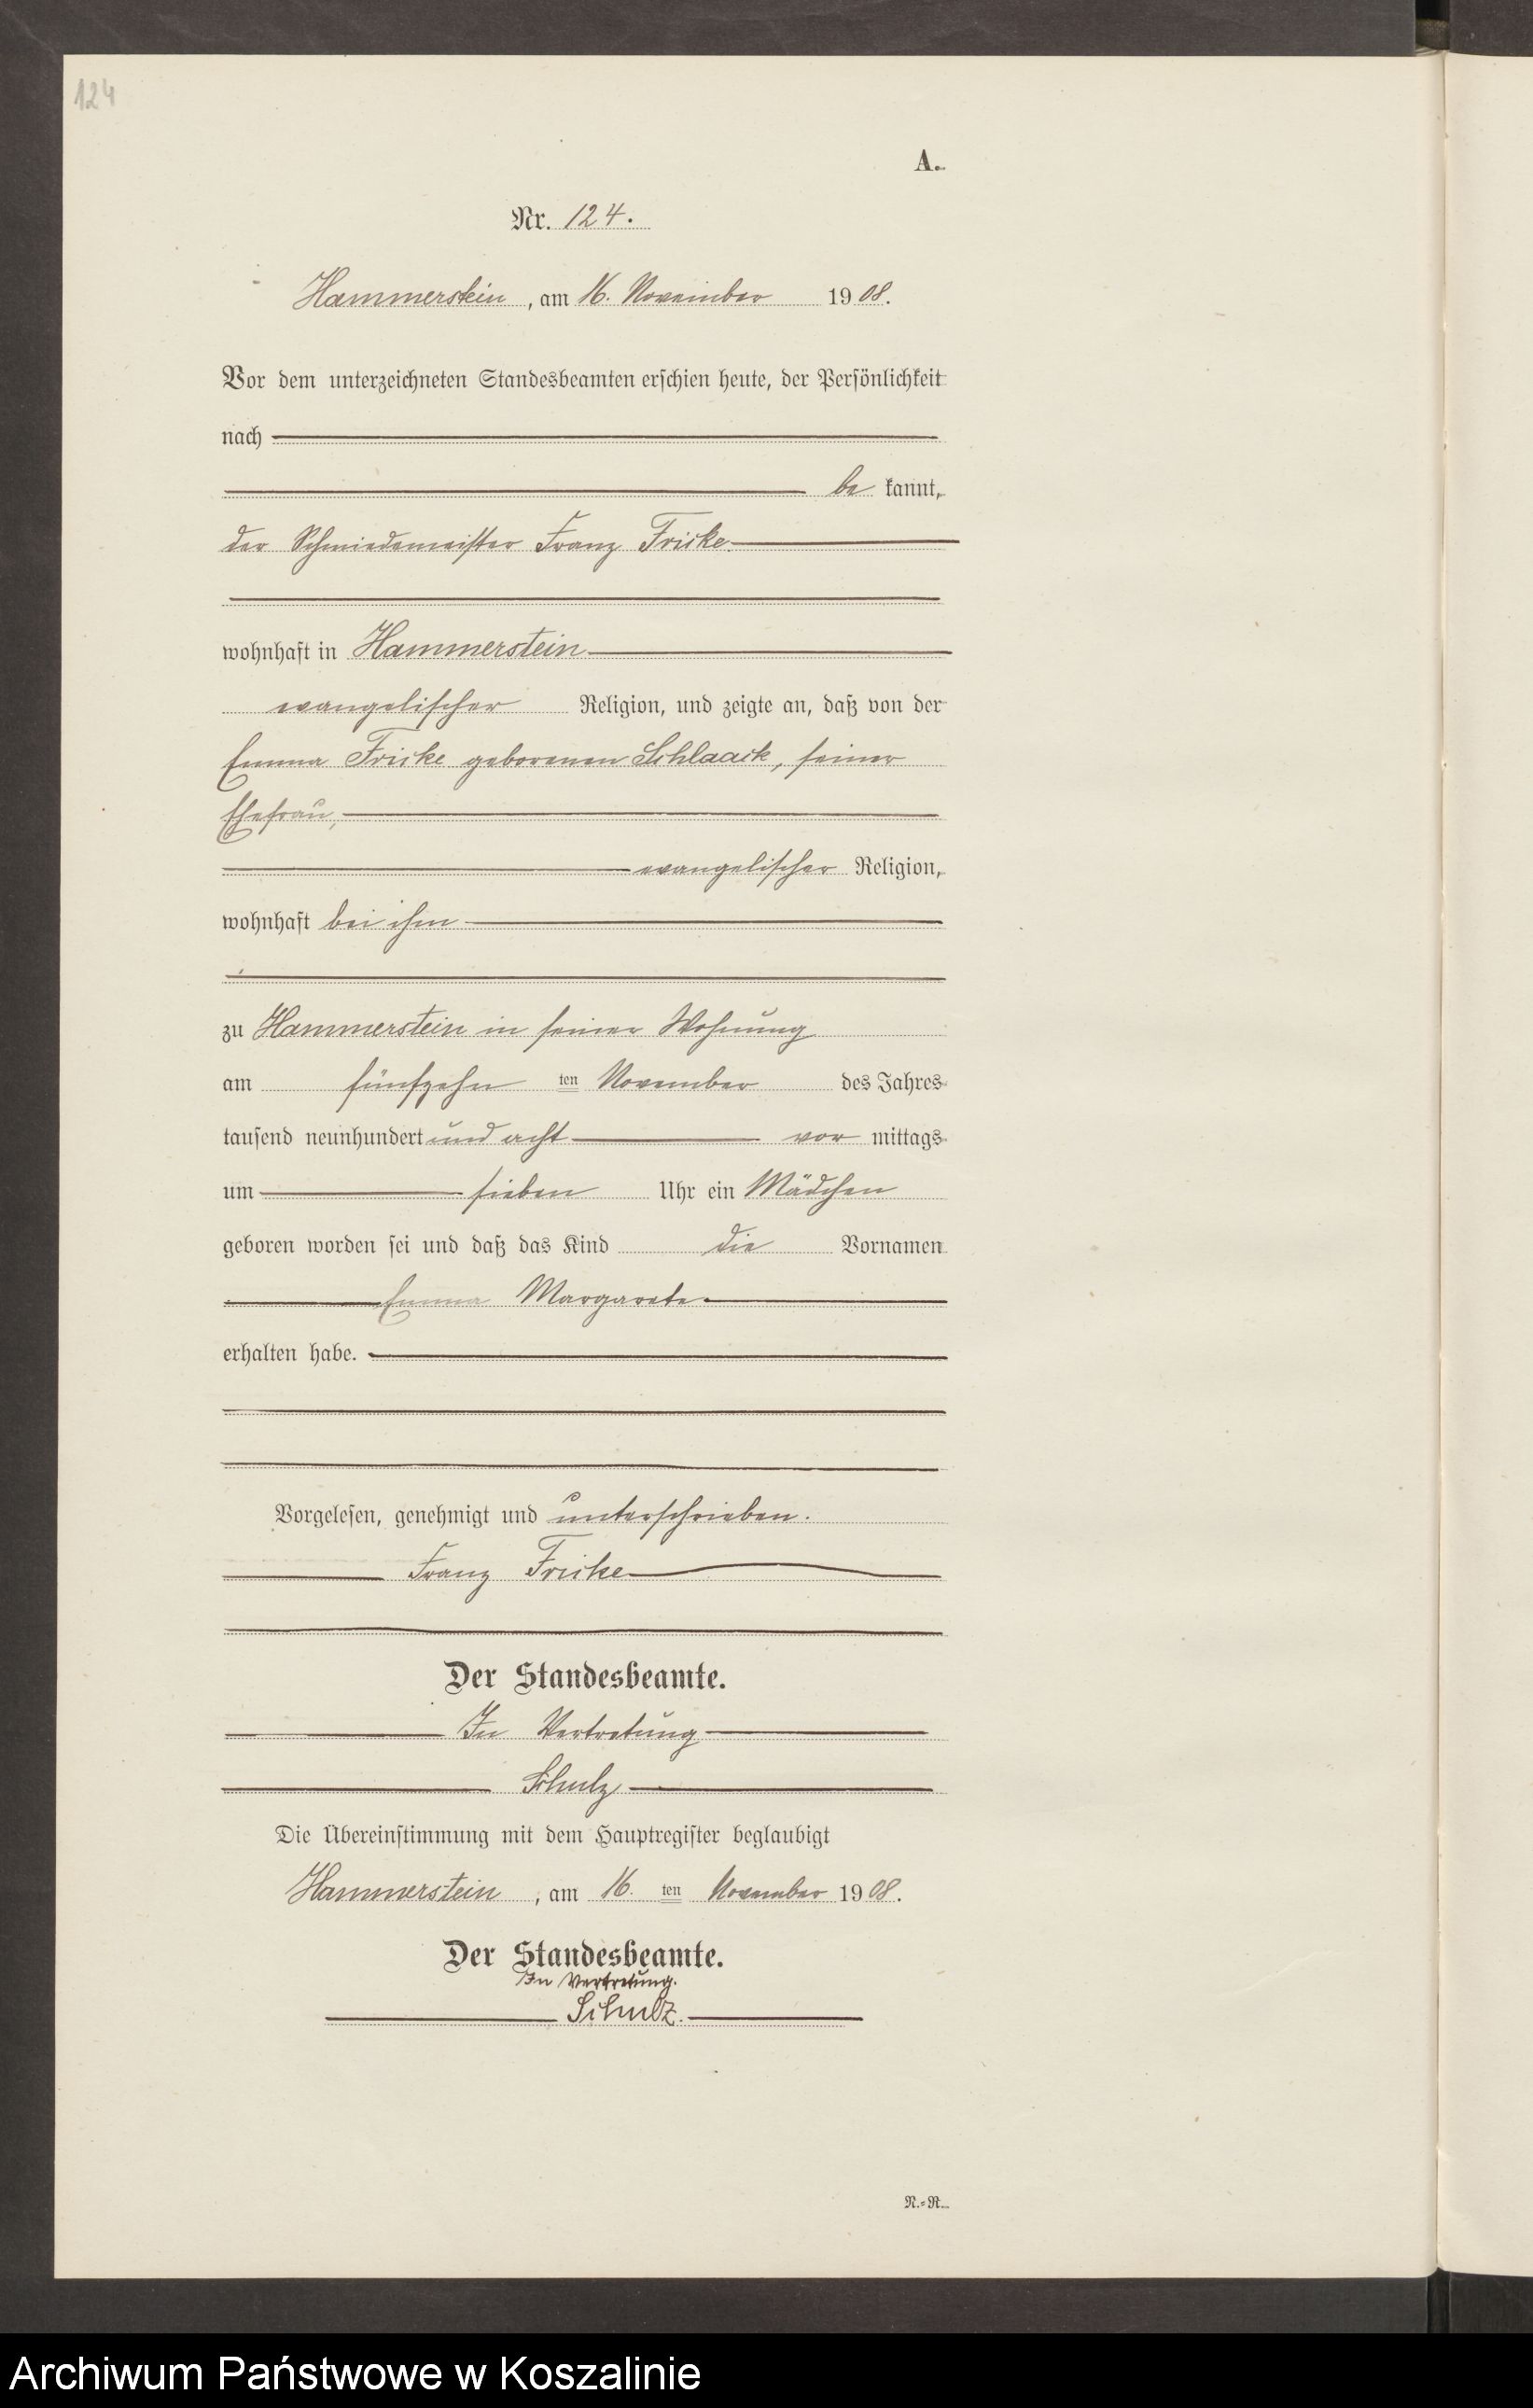 124
A.
Nr. 124.
Hammerstein, am 16. November 1908.
Vor dem unterzeichneten Standesbeamten erschien heute, der Persönlichkeit
nach
be kannt,
der Schmiedemeister Franz Fricke
wohnhaft in Hammerstein
evangelischer Religion, und zeigte an, daß von der
Emma Fricke geborenen Schlaack, seiner
Ehefrau,
evangelischer Religion,
wohnhaft bei ihm
zu Hammerstein in seiner Wohnung
am fünfzehn ten November des Jahres
tausend neunhundert und acht vor mittags
um sieben Uhr ein Mädchen
geboren worden sei und daß das Kind die Vornamen
Emma Margarete
erhalten habe.
Vorgelesen, genehmigt und unterschrieben.
Franz Fricke
Der Standesbeamte.
In Vertretung
Schulz
Die Übereinstimmung mit dem Hauptregister beglaubigt
Hammerstein, am 16. ten November 1908.
Der Standesbeamte.
In Vertretung.
Schulz.
N.=R.
Archiwum Państwowe w Koszalinie